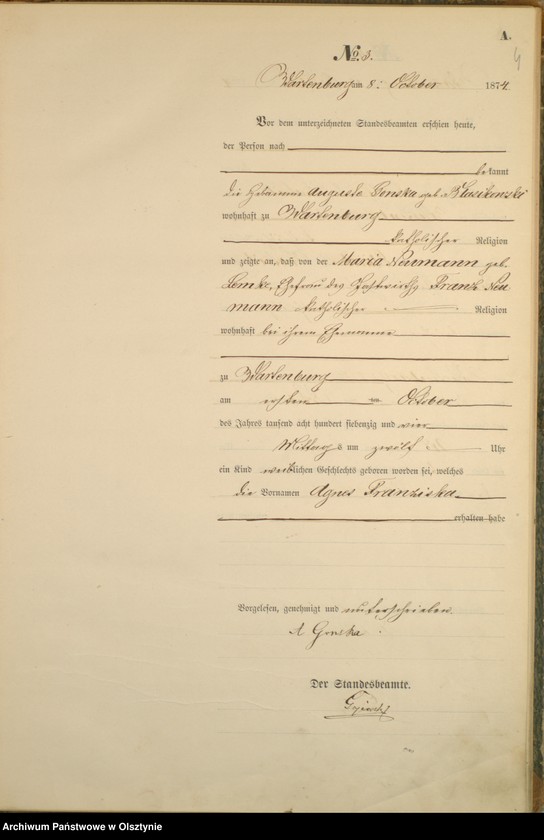 A.
4
No. 3.
Wartenburg am 8. October 1874
Vor dem unterzeichneten Standesbeamten erschien heute,
der Person nach
bekannt
die Hebamme Auguste Gonska geb.
wohnhaft zu Wartenburg
katholischer Religion
und zeigte an, daß von der Maria Neumann geb.
Lemke, Ehefrau des Gastwirths Franz Neu
mann katholischer Religion
wohnhaft bei ihrem Ehemanne
zu Wartenburg
am ersten October
des Jahres tausend acht hundert siebenzig und vier
Mittags um zwölf Uhr
ein Kind weiblichen Geschlechts geboren worden sei, welches
die Vornamen Agnes Franziska
erhalten habe
Vorgelesen, genehmigt und unterschrieben.
A Gonska
Der Standesbeamte.
Archiwum Państwowe w Olsztynie